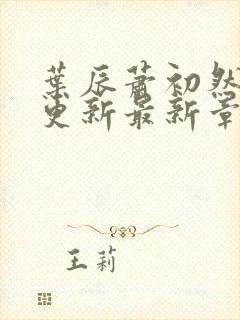 葉辰蕭初然
更新最新章
王莉